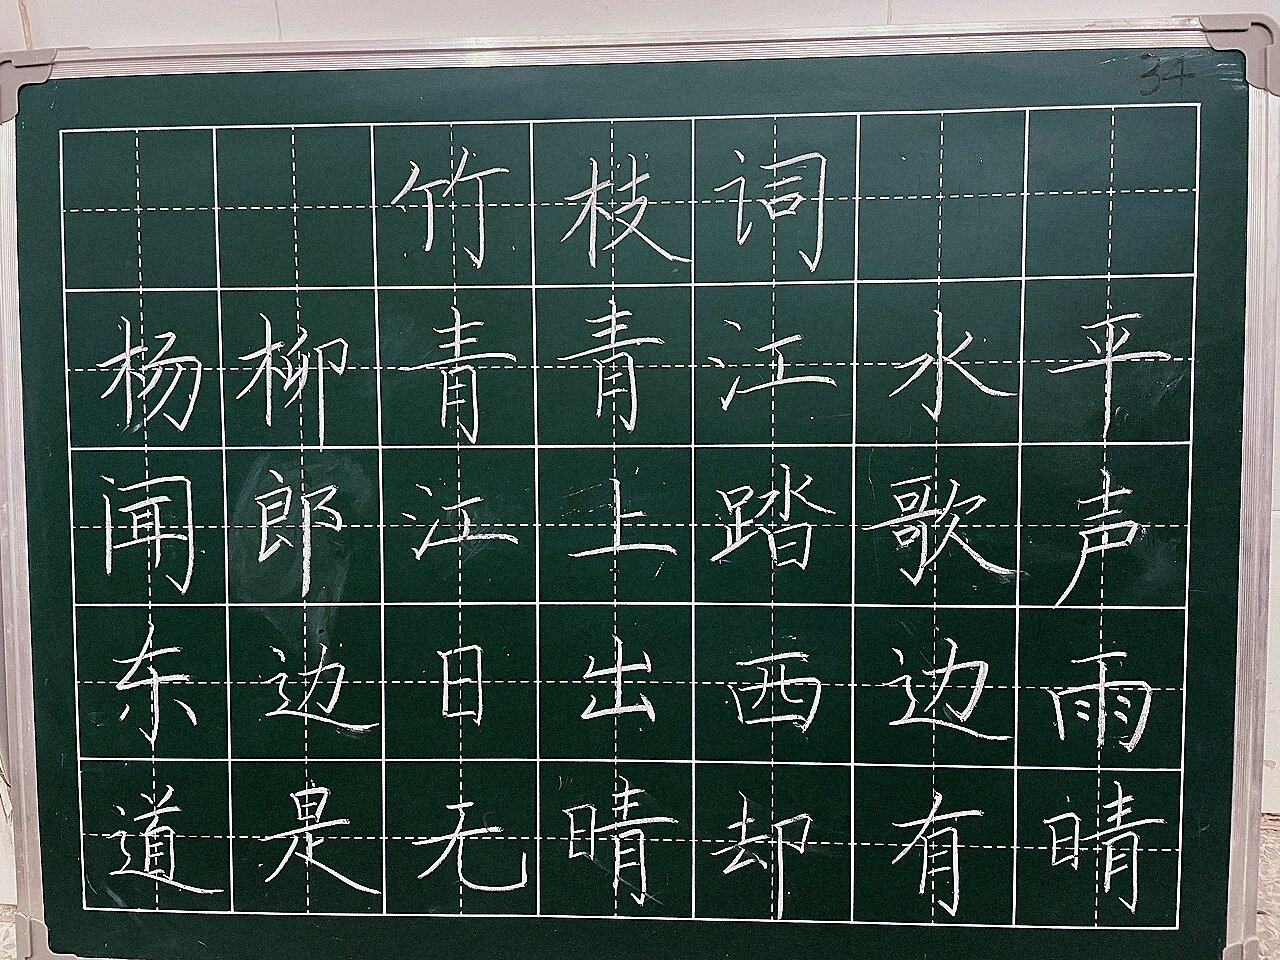 34
竹枝词
杨柳青青江水平
闻郎江上踏歌声
东边日出西边雨
道是无晴却有晴